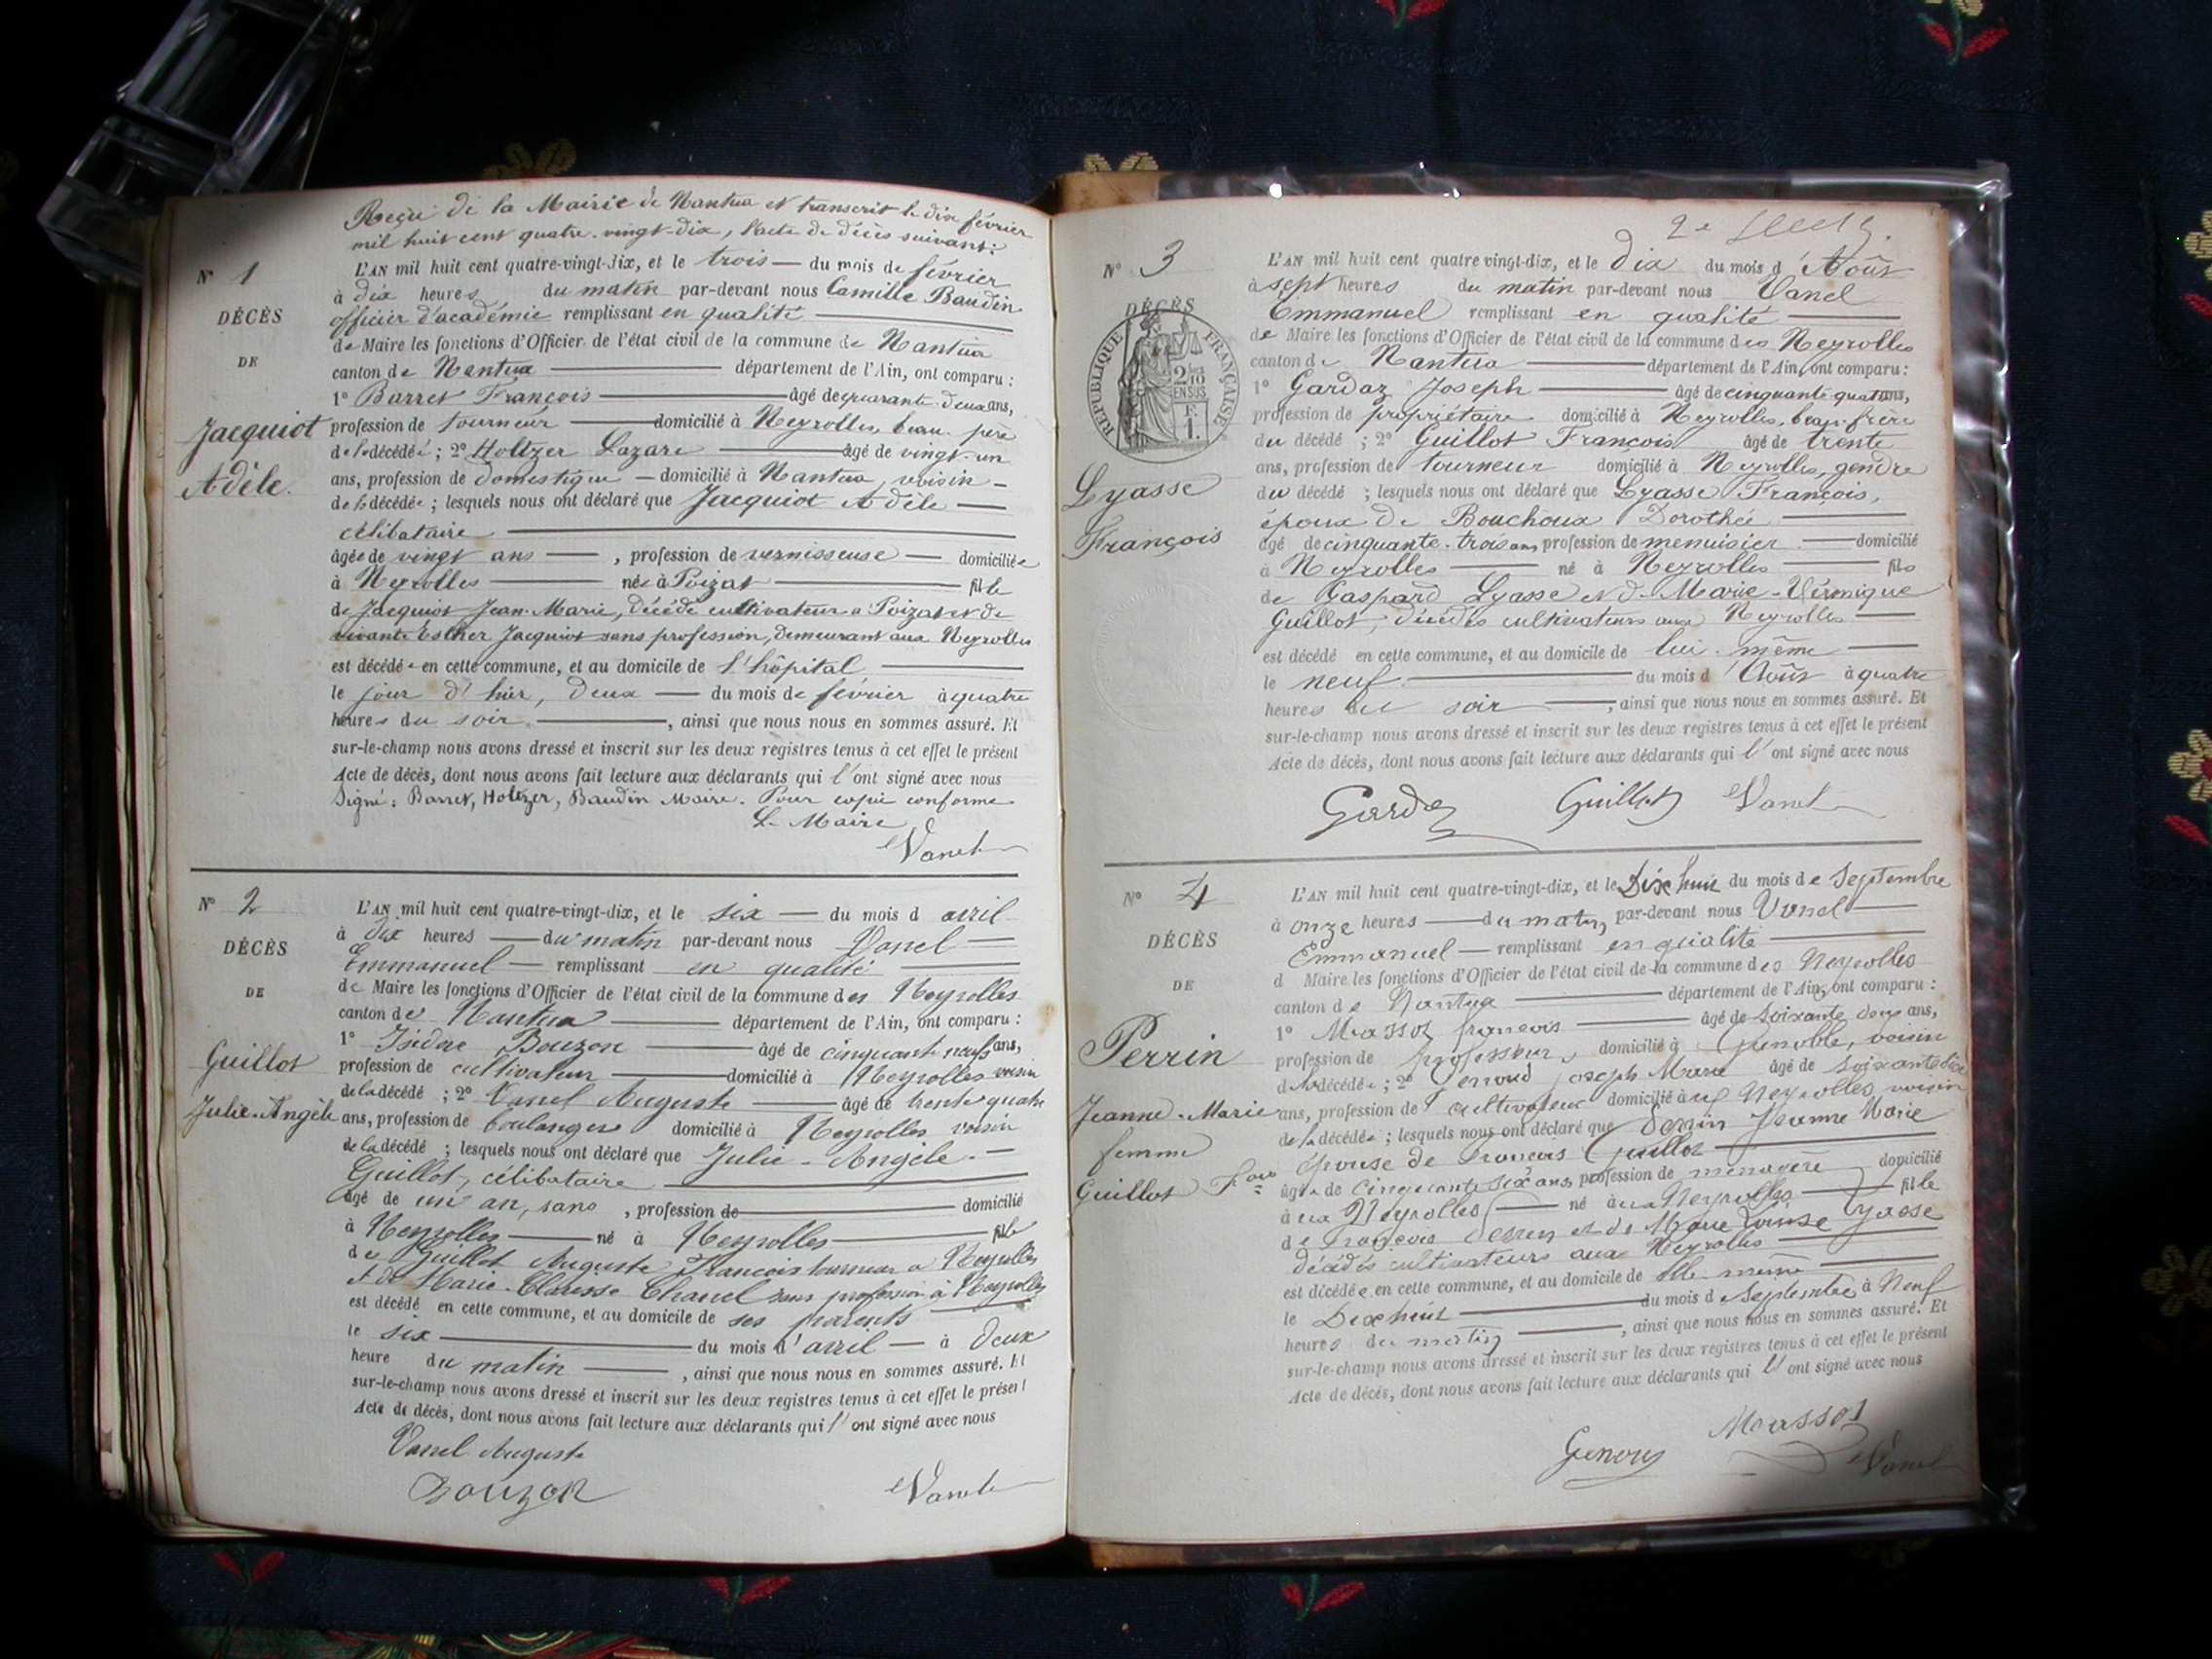 Reçu de la Mairie de Nantua et transcrit le dix février
mil huit cent quatre-vingt-dix, l'acte de décès suivant:
N° 1
DÉCÈS
DE
Jacquiot
Adèle.
L'AN mil huit cent quatre-vingt-dix, et le trois — du mois de février
à dix heures du matin par-devant nous Camille Baudin
officier d'académie remplissant en qualité —
de Maire les fonctions d'Officier de l'état civil de la commune de Nantua
canton de Nantua — département de l'Ain, ont comparu :
1° Barret François — âgé de quarante-deux ans,
profession de tourneur — domicilié à Neyrolles, beau-père
de la décédée ; 2° Holtzer Lazare — âgé de vingt-un
ans, profession de domestique — domicilié à Nantua, voisin —
de la décédée ; lesquels nous ont déclaré que Jacquiot Adèle —
célibataire —
âgée de vingt ans — , profession de vernisseuse — domiciliée
à Neyrolles — née à Poizat — fille
de Jacquiot Jean-Marie, décédé cultivateur à Poizat et de
vivante Esther Jacquiot sans profession, demeurant aux Neyrolles
est décédée en cette commune, et au domicile de l'hôpital —
le jour d'hier, deux — du mois de février à quatre
heures du soir — , ainsi que nous nous en sommes assuré. Et
sur-le-champ nous avons dressé et inscrit sur les deux registres tenus à cet effet le présent
Acte de décès, dont nous avons fait lecture aux déclarants qui l'ont signé avec nous
Signé : Barret, Holtzer, Baudin Maire. Pour copie conforme
Le Maire
Vanel
N° 2
DÉCÈS
DE
Guillot
Julie-Angèle
L'AN mil huit cent quatre-vingt-dix, et le six — du mois d avril
à dix heures — du matin par-devant nous Vanel —
Emmanuel — remplissant en qualité —
de Maire les fonctions d'Officier de l'état civil de la commune des Neyrolles
canton de Nantua — département de l'Ain, ont comparu :
1° Isidore Bouzon — âgé de cinquante neuf ans,
profession de cultivateur — domicilié à Neyrolles voisin
de la décédé ; 2° Vanel Auguste — âgé de trente quatre
ans, profession de boulanger domicilié à Neyrolles voisin
de la décédé ; lesquels nous ont déclaré que Julie-Angèle —
Guillot, célibataire —
âgé de un an, sans , profession de — domicilié
à Neyrolles — né à Neyrolles — fille
de Guillot Auguste François tourneur à Neyrolles
et de Marie-Clarisse Chanel sans profession à Neyrolles
est décédé en cette commune, et au domicile de ses parents —
le six — du mois d'avril — à deux
heure du matin — , ainsi que nous nous en sommes assuré. Et
sur-le-champ nous avons dressé et inscrit sur les deux registres tenus à cet effet le présent
Acte de décès, dont nous avons fait lecture aux déclarants qui l'ont signé avec nous
Vanel Auguste
Bouzon
Vanel
2e
N° 3
DÉCÈS
RÉPUBLIQUE FRANÇAISE
2/10
EN SUS
F.
1.
Lyasse
François
L'AN mil huit cent quatre-vingt-dix, et le dix du mois d'Août
à sept heures du matin par-devant nous Vanel
Emmanuel remplissant en qualité —
de Maire les fonctions d'Officier de l'état civil de la commune des Neyrolles
canton de Nantua — département de l'Ain, ont comparu :
1° Gardaz Joseph — âgé de cinquante quatre ans,
profession de propriétaire domicilié à Neyrolles, beau-frère
du décédé ; 2° Guillot François âgé de trente
ans, profession de tourneur domicilié à Neyrolles, gendre
du décédé ; lesquels nous ont déclaré que Lyasse François,
époux de Bouchoux Dorothée —
âgé de cinquante-trois ans profession de menuisier — domicilié
à Neyrolles — né à Neyrolles — fils
de Gaspard Lyasse et de Marie-Véronique
Guillot, décédés cultivateurs aux Neyrolles —
est décédé en cette commune, et au domicile de lui-même —
le neuf — du mois d'Août à quatre
heures du soir — , ainsi que nous nous en sommes assuré. Et
sur-le-champ nous avons dressé et inscrit sur les deux registres tenus à cet effet le présent
Acte de décès, dont nous avons fait lecture aux déclarants qui l'ont signé avec nous
Gardaz Guillot Vanel
N° 4
DÉCÈS
DE
Perrin
Jeanne-Marie
femme
Guillot Fois
L'AN mil huit cent quatre-vingt-dix, et le Dix huit du mois de Septembre
à onze heures — du matin par-devant nous Vanel —
Emmanuel — remplissant en qualité —
d Maire les fonctions d'Officier de l'état civil de la commune des Neyrolles
canton de Nantua — département de l'Ain, ont comparu :
1° Massot françois — âgé de soixante deux ans,
profession de professeur domicilié à Grenoble, voisin
de la décédée ; 2° Genoud Joseph Marie âgé de soixante dix
ans, profession de cultivateur domicilié aux Neyrolles, voisin
de la décédée ; lesquels nous ont déclaré que Perrin Jeanne Marie
épouse de François Guillot —
âgée de cinquante six ans, profession de ménagère domicilié
aux Neyrolles — né aux Neyrolles — fille
de François Perrin et de Marie Louise Lyasse
décédés cultivateurs aux Neyrolles —
est décédée en cette commune, et au domicile de elle-même —
le Dix huit — du mois d Septembre à Neuf
heures du matin — , ainsi que nous nous en sommes assuré. Et
sur-le-champ nous avons dressé et inscrit sur les deux registres tenus à cet effet le présent
Acte de décès, dont nous avons fait lecture aux déclarants qui l'ont signé avec nous
Genoud Massot Vanel